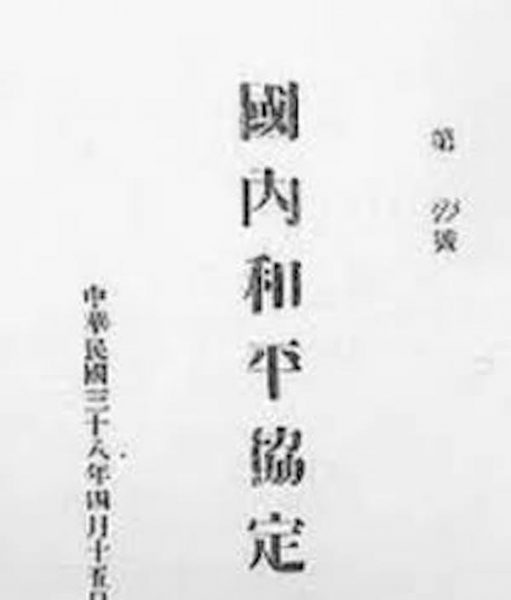 第 93 號
國內和平協定
中華民國三十八年四月十五日